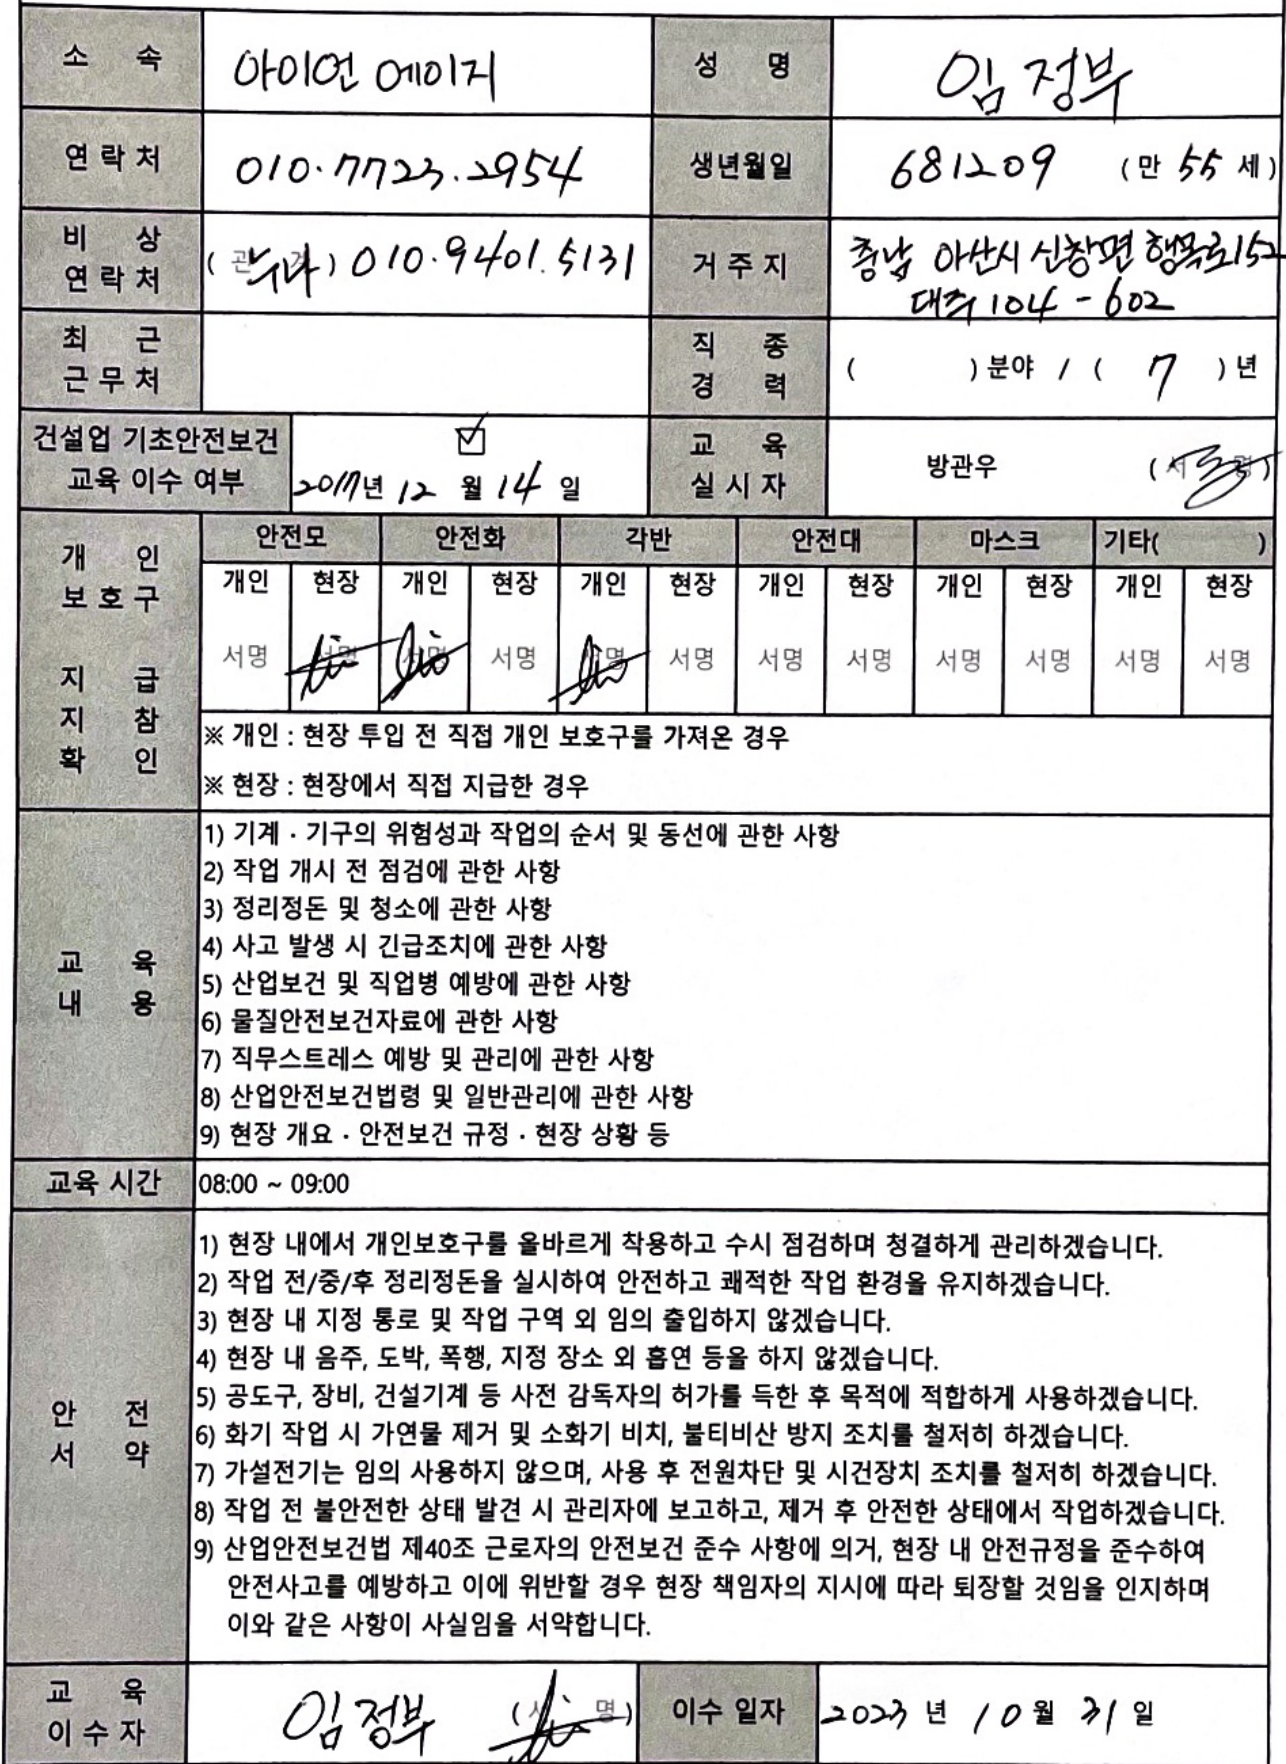 소 속 아이언 에이지 성 명 임정부
연락처 010.7723.2954 생년월일 681209 (만 55 세)
비 상 연락처 (관 계 누나) 010.9401.5131 거주지 충남 아산시 신창면 행목로152
대주 104-602
최 근 근무처 직 종 경 력 ( )분야 / ( 7 )년
건설업 기초안전보건
교육 이수 여부 ☑ 2017년 12 월 14 일 교 육 실시자 방관우 (서 명)
개 인 보호구 지 급 지 참 확 인
안전모 안전화 각반 안전대 마스크 기타( )
개인 현장 개인 현장 개인 현장 개인 현장 개인 현장 개인 현장
서명 서명 서명 서명 서명 서명 서명 서명 서명 서명 서명 서명
※ 개인 : 현장 투입 전 직접 개인 보호구를 가져온 경우
※ 현장 : 현장에서 직접 지급한 경우
교 육 내 용
1) 기계 · 기구의 위험성과 작업의 순서 및 동선에 관한 사항
2) 작업 개시 전 점검에 관한 사항
3) 정리정돈 및 청소에 관한 사항
4) 사고 발생 시 긴급조치에 관한 사항
5) 산업보건 및 직업병 예방에 관한 사항
6) 물질안전보건자료에 관한 사항
7) 직무스트레스 예방 및 관리에 관한 사항
8) 산업안전보건법령 및 일반관리에 관한 사항
9) 현장 개요 · 안전보건 규정 · 현장 상황 등
교육 시간 08:00 ~ 09:00
안 전 서 약
1) 현장 내에서 개인보호구를 올바르게 착용하고 수시 점검하며 청결하게 관리하겠습니다.
2) 작업 전/중/후 정리정돈을 실시하여 안전하고 쾌적한 작업 환경을 유지하겠습니다.
3) 현장 내 지정 통로 및 작업 구역 외 임의 출입하지 않겠습니다.
4) 현장 내 음주, 도박, 폭행, 지정 장소 외 흡연 등을 하지 않겠습니다.
5) 공도구, 장비, 건설기계 등 사전 감독자의 허가를 득한 후 목적에 적합하게 사용하겠습니다.
6) 화기 작업 시 가연물 제거 및 소화기 비치, 불티비산 방지 조치를 철저히 하겠습니다.
7) 가설전기는 임의 사용하지 않으며, 사용 후 전원차단 및 시건장치 조치를 철저히 하겠습니다.
8) 작업 전 불안전한 상태 발견 시 관리자에 보고하고, 제거 후 안전한 상태에서 작업하겠습니다.
9) 산업안전보건법 제40조 근로자의 안전보건 준수 사항에 의거, 현장 내 안전규정을 준수하여
안전사고를 예방하고 이에 위반할 경우 현장 책임자의 지시에 따라 퇴장할 것임을 인지하며
이와 같은 사항이 사실임을 서약합니다.
교 육 이수자 임정부 (서 명) 이수 일자 2023 년 10 월 31 일